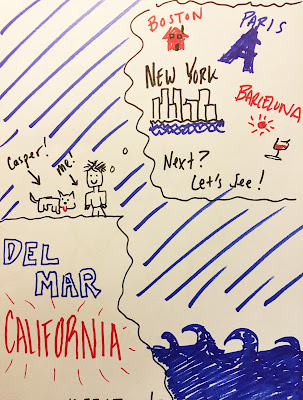 BOSTON
PARIS
NEW YORK
BARCELONA
Next?
Let's see!
Casper!
me!
DEL
MAR
CALIFORNIA